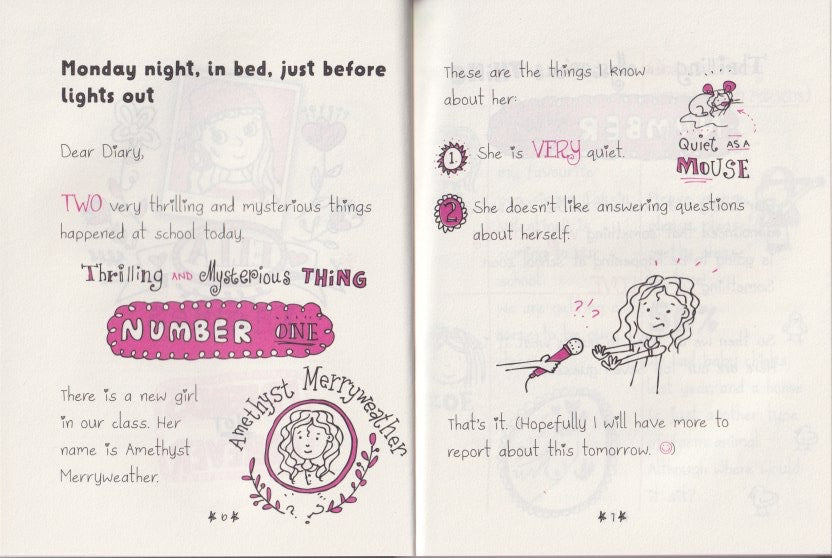 Monday night, in bed, just before
lights out
Dear Diary,
TWO very thrilling and mysterious things
happened at school today.
Thrilling AND Mysterious THING
NUMBER ONE
There is a new girl
in our class. Her
name is Amethyst
Merryweather.
Amethyst Merryweather
? ?
6
These are the things I know
about her:
1. She is VERY quiet.
Quiet AS A
MOUSE
2 She doesn't like answering questions
about herself.
?!?
That's it. (Hopefully I will have more to
report about this tomorrow. ☺)
7